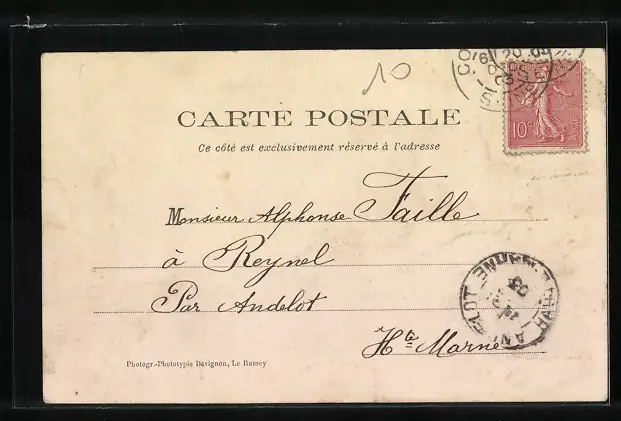 10
CARTE POSTALE
10c
Ce côté est exclusivement réservé à l'adresse
Monsieur Alphonse Faille
à Reynel
Par Andelot
Hte Marne
Photogr.-Phototypie Davignon, Le Ramey